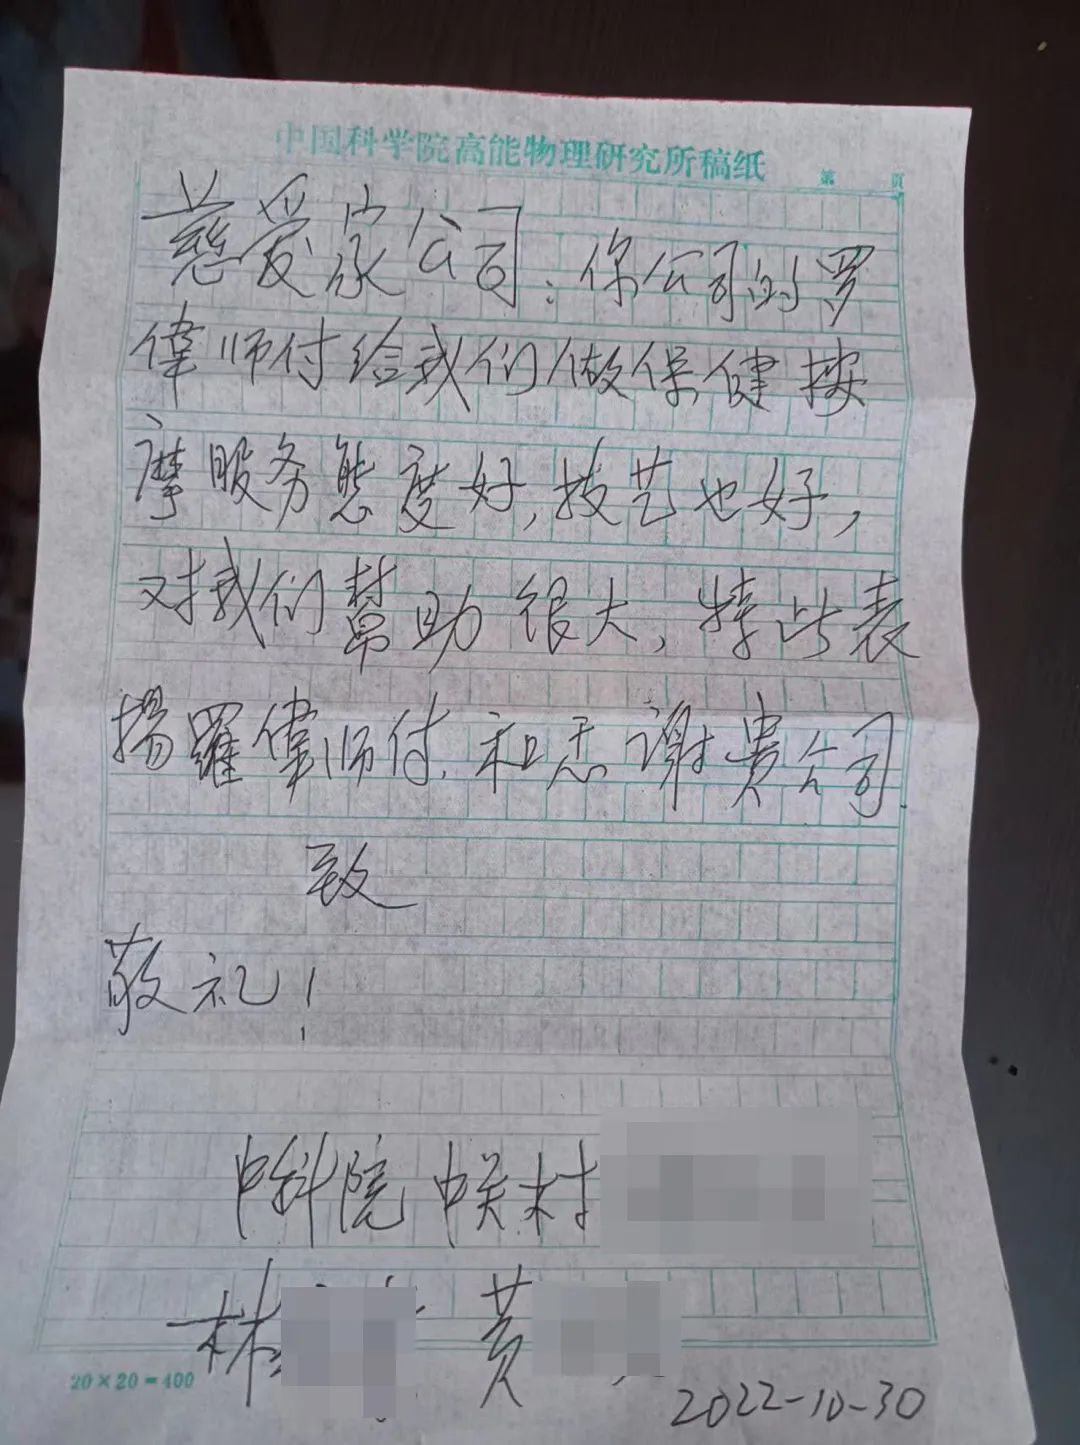 中国科学院高能物理研究所稿纸
第 页
慈爱家公司:你公司的罗
偉师付给我们做保健按
摩服务態度好,技艺也好,
对我们幇助很大,特此表
揚羅偉师付.和感谢贵公司.
致
敬礼!
中科院 中关村
林 黄
2022-10-30
20×20=400